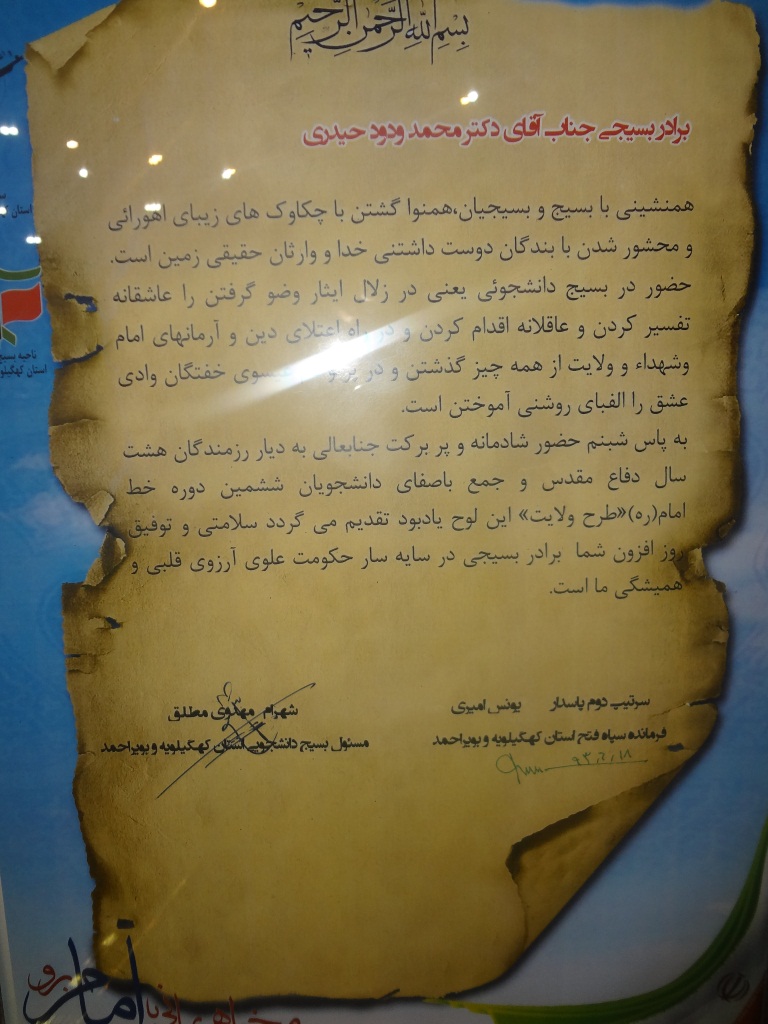 بسم الله الرحمن الرحیم
برادر بسیجی جناب آقای دکتر محمد ودود حیدری
همنشینی با بسیج و بسیجیان،همنوا گشتن با چکاوک های زیبای اهورائی
و محشور شدن با بندگان دوست داشتنی خدا و وارثان حقیقی زمین است.
حضور در بسیج دانشجوئی یعنی در زلال ایثار وضو گرفتن را عاشقانه
تفسیر کردن و عاقلانه اقدام کردن و در راه اعتلای دین و آرمانهای امام
وشهداء و ولایت از همه چیز گذشتن و در خفتگان وادی
عشق را الفبای روشنی آموختن است.
به پاس شبنم حضور شادمانه و پر برکت جنابعالی به دیار رزمندگان هشت
سال دفاع مقدس و جمع باصفای دانشجویان ششمین دوره خط
امام(ره)«طرح ولایت» این لوح یادبود تقدیم می گردد سلامتی و توفیق
روز افزون شما برادر بسیجی در سایه سار حکومت علوی آرزوی قلبی و
همیشگی ما است.
سرتیپ دوم پاسدار یونس امیری
فرمانده سپاه فتح استان کهگیلویه و بویراحمد
شهرام مهدوی مطلق
مسئول بسیج دانشجویی استان کهگیلویه و بویراحمد
ناحیه بسیج
استان کهگیلو